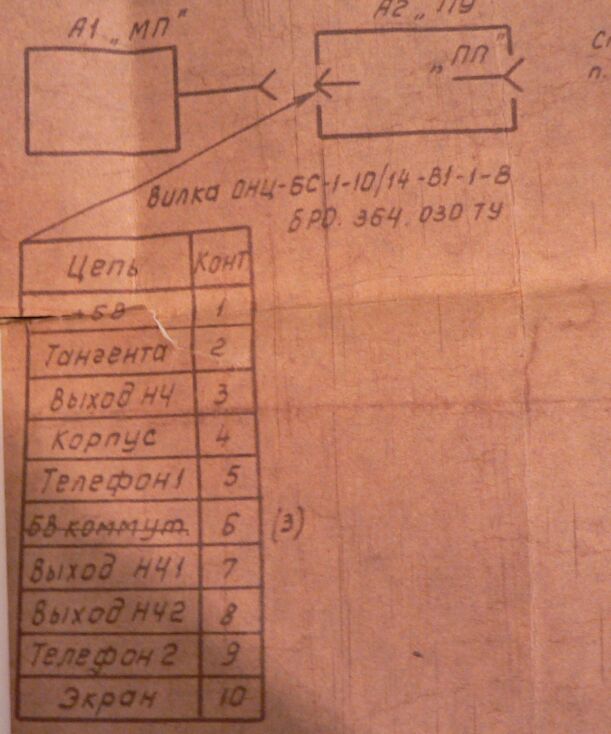 А1 „МП"
А2 „ПУ"
„ПП"
п.
Вилка ОНЦ-БС-1-10/14-В1-1-В
бРО. 364. 030 ТУ
Цепь Конт
1
Тангента 2
Выход НЧ 3
Корпус 4
Телефон1 5
6В коммут. 6 (3)
Выход НЧ1 7
Выход НЧ2 8
Телефон 2 9
Экран 10